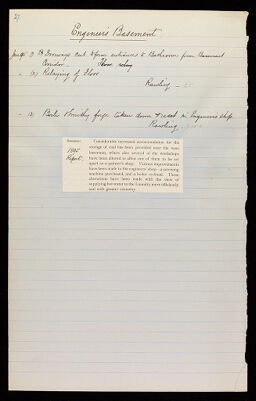 27
Engineer's Basement
Doorways cut & form entrances to Bedrooms from Basement
Corridor. Floor relay
(2) Relaying of Floor
Rawling
(3) Boiler & Smithy forge taken down & reset in Engineer's shop.
Rawling
1895
Report.
Considerable increased accommodation for the
storage of coal has been provided near the west
basement, where also several of the workshops
have been altered to allow one of them to be set
apart as a painter's shop. Various improvements
have been made in the engineers' shop—a screwing
machine purchased, and a boiler reclined. These
alterations have been made with the view of
supplying hot water to the Laundry more efficiently
and with greater economy.